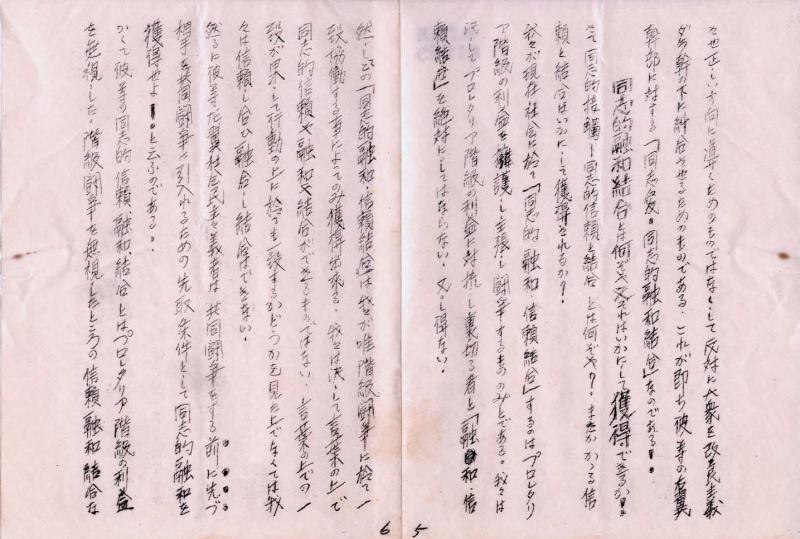 々也正しい方向に導くためのものではなくして反対に大衆を改良主義
ダラ幹の下に結合させるためのものである．これが即ち彼等の左翼
幹部に対する「同志愛・同志的融和結合」なのである・・
同志的融和結合とは何ぞや又それはいかにして獲得できるか・・
さて同志的接触―同志的信頼と結合とは何ぞや？．またかゝる信
頼と結合はいかにして獲得されるか？．
我々が現在社会に於て「同志的融和・信頼結合」するのはプロレタリ
ア階級の利益を擁護し主張し闘争するもののみとである。我々は
決してプロレタリア階級の利益に対抗し裏切る者と「融和・信
頼結合」を絶対してはならない．又し得ない．
5
然してこの「同志的融和・信頼結合は我々が唯階級闘争に於て一
致協働する事によってのみ獲得出来る．我々は決して言葉の上で
同志的信頼や融和や結合ができるものではない．言葉の上での一
致が果して行動の上に於ても一致するかどうかを見た上でなくては我
々は信頼し合ひ融合し結合はできない．
然るに彼等左翼社会民主々義者は共同闘争をする前に先づ
相手を共同闘争に引入れるための先取条件として同志的融和を
獲得せよ・・と云ふのである．．
かくて彼等の同志的信頼融和結合とはプロレタリア階級の利益
を無視した．階級闘争を無視したところの信頼融和結合な
6